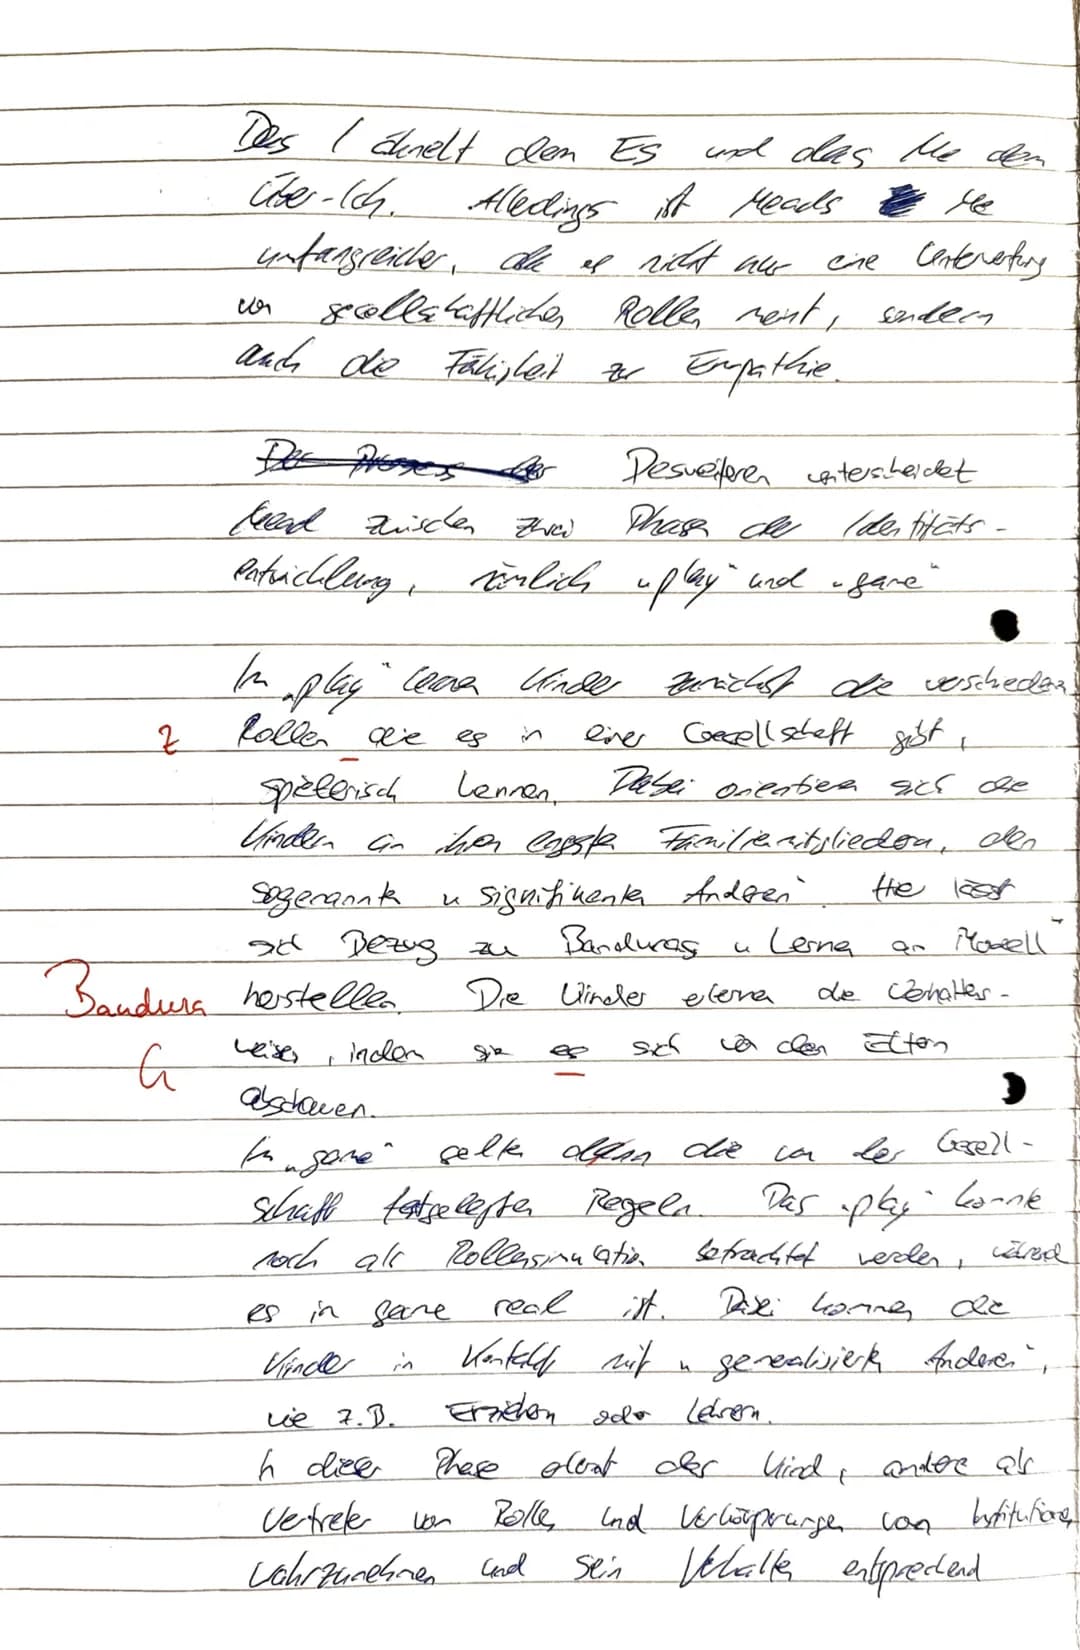 Das I ähnelt dem Es und das Me dem
Über-Ich. Alledings ist Meads Me
umfangreicher, da es nicht nur eine
von gesellschaftlichen Rollen meint, sondern
auch die Fähigkeit zur Empathie.
Der Prozess der Desweiteren unterscheidet
Mead zwischen zwei Phasen der Identitäts-
entwicklung, nämlich „play“ und „game“
Im „play“ lernen Kinder zunächst die verschiedenen
z Rollen die es in einer Gesellschaft gibt,
spielerisch kennen. Dabei orientieren sich die
Kindern an ihren engsten Familienmitgliedern, den
sogenannten „signifikanten Anderen“. Hie lässt
sich Bezug zu Banduras „Lernen am Modell“
Bandura herstellen. Die Kinder erlernen die Verhaltens-
G weisen, indem sie es sich von den Eltern
abschauen.
Im „game“ gelten dann die von der Gesell-
schaft festgelegten Regeln. Das „play“ konnte
noch als Rollensimulation betrachtet werden, während
es in game real ist. Dabei kommen die
Kinder in Kontakt mit „generalisierten Anderen“,
wie z.B. Erziehern oder Lehrern.
In dieser Phase lernt das Kind, andere als
Vertreter von Rollen und Verkörperungen von Institutionen
wahrzunehmen und sein Verhalten entsprechend